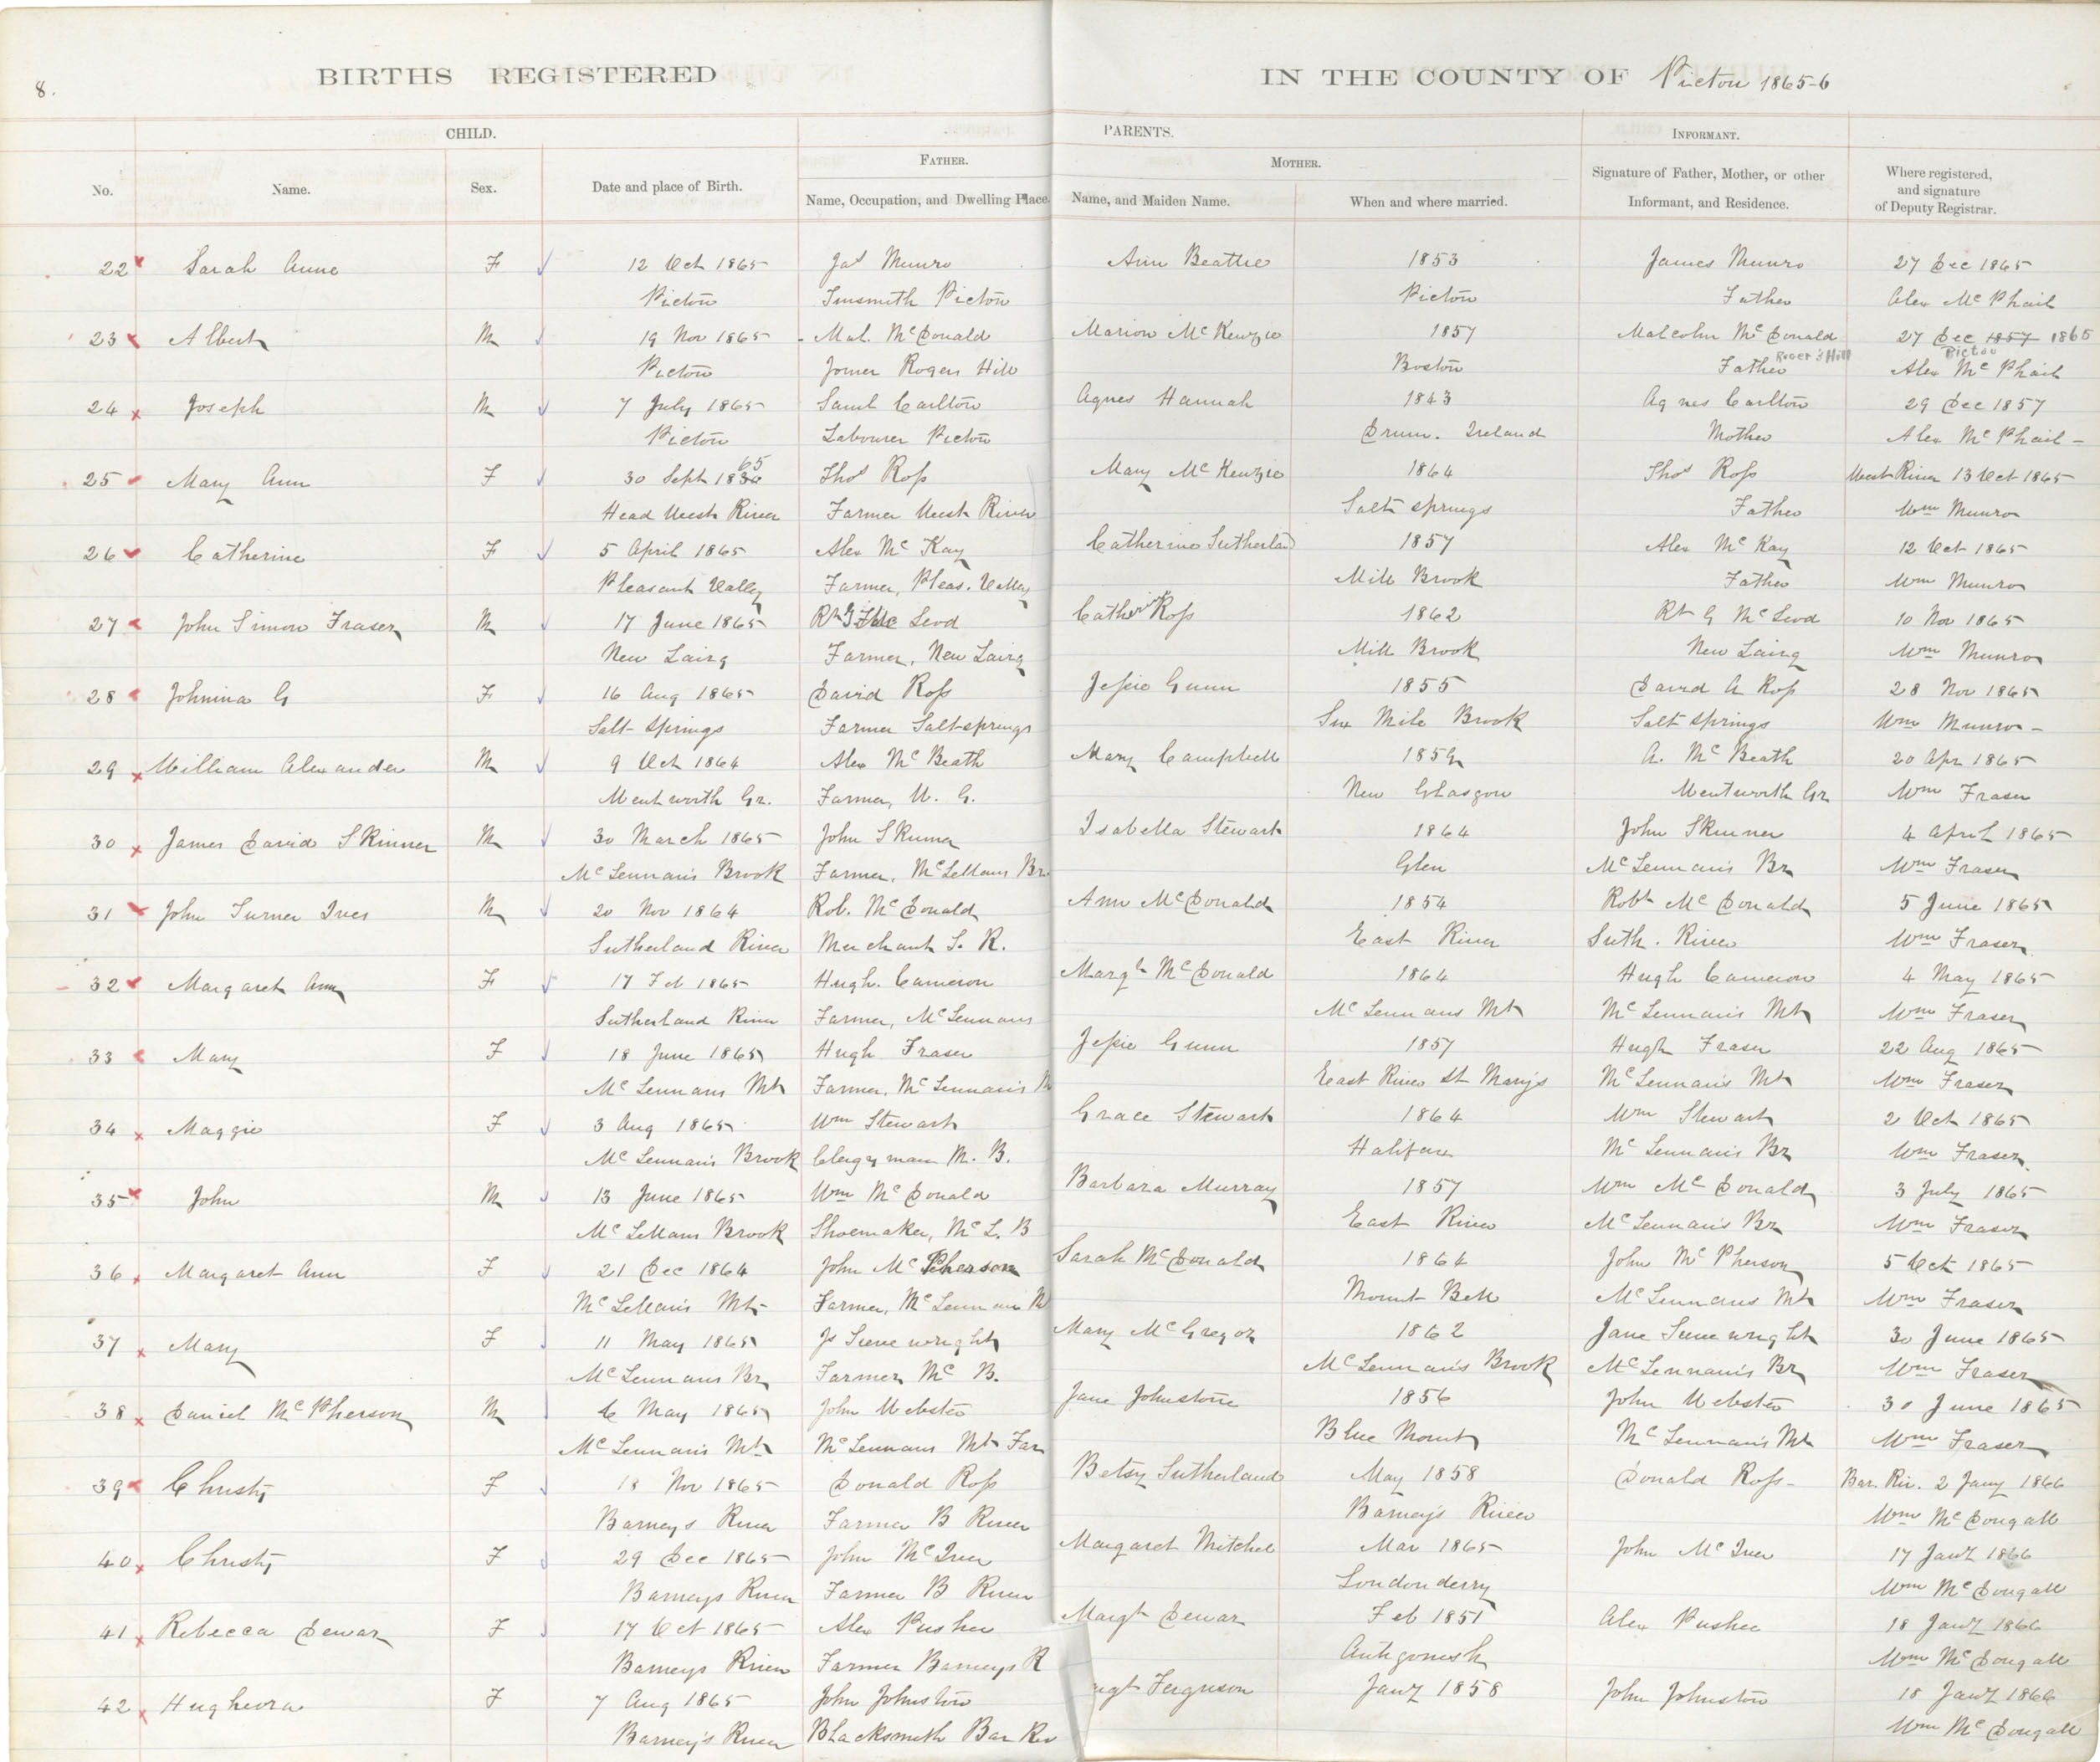 8.
BIRTHS REGISTERED IN THE COUNTY OF Picton 1865-6
CHILD. PARENTS. INFORMANT.
FATHER. MOTHER.
No. Name. Sex. Date and place of Birth. Name, Occupation, and Dwelling Place. Name, and Maiden Name. When and where married. Signature of Father, Mother, or other Informant, and Residence. Where registered, and signature of Deputy Registrar.
22 Sarah Anne F 12 Oct 1865 Jas Munro Ann Beattie 1853 James Munro 27 Dec 1865
Picton Tinsmith Picton Picton Father Alex McPhail
23 Albert M 19 Nov 1865 Mal. McDonald Marion McKenzie 1857 Malcolm McDonald 27 Dec 1857 1865
Picton Joiner Rogers Hill Boston Father Roger's Hill Pictou Alex McPhail
24 Joseph M 7 July 1865 Saml Carlton Agnes Hannah 1843 Agnes Carlton 29 Dec 1857
Picton Labourer Picton Drum. Ireland Mother Alex McPhail
25 Mary Ann F 30 Sept 1865 Thos Ross Mary McKenzie 1864 Thos Ross West River 13 Oct 1865
Head West River Farmer West River Salt springs Father Wm Munro
26 Catherine F 5 April 1865 Alex McKay Catherine Sutherland 1857 Alex McKay 12 Oct 1865
Pleasant Valley Farmer, Pleas. Valley Mill Brook Father Wm Munro
27 John Simon Fraser M 17 June 1865 Rt G McLeod Catherine Ross 1862 Rt G McLeod 10 Nov 1865
New Lairg Farmer, New Lairg Mill Brook New Lairg Wm Munro
28 Johnina G F 16 Aug 1865 David Ross Jessie Gunn 1855 David A Ross 28 Nov 1865
Salt springs Farmer Salt springs Six Mile Brook Salt springs Wm Munro
29 William Alexander M 9 Oct 1864 Alex McBeath Mary Campbell 1859 A. McBeath 20 Apr 1865
Wentworth Gr. Farmer, W. G. New Glasgow Wentworth Gr Wm Fraser
30 James David Skinner M 30 March 1865 John Skinner Isabella Stewart 1864 John Skinner 4 April 1865
McLennan's Brook Farmer, McLellans Br Glen McLennan's Br Wm Fraser
31 John Turner Ives M 20 Nov 1864 Rob. McDonald Ann McDonald 1854 Robt McDonald 5 June 1865
Sutherland River Merchant S. R. East River Suth. River Wm Fraser
32 Margaret Ann F 17 Feb 1865 Hugh. Cameron Margt McDonald 1864 Hugh Cameron 4 May 1865
Sutherland River Farmer, McLennans McLennans Mt McLennan's Mt Wm Fraser
33 Mary F 18 June 1865 Hugh Fraser Jessie Gunn 1857 Hugh Fraser 22 Aug 1865
McLennans Mt Farmer, McLennan's M East River St Mary's McLennan's Mt Wm Fraser
34 Maggie F 3 Aug 1865 Wm Stewart Grace Stewart 1864 Wm Stewart 2 Oct 1865
McLennan's Brook Clergyman M. B. Halifax McLennan's Br Wm Fraser
35 John M 13 June 1865 Wm McDonald Barbara Murray 1857 Wm McDonald 3 July 1865
McLellans Brook Shoemaker, McL. B East River McLennan's Br Wm Fraser
36 Margaret Ann F 21 Dec 1864 John McPherson Sarah McDonald 1864 John McPherson 5 Oct 1865
McLellan's Mt Farmer, McLennan M Mount Bell McLennans Mt Wm Fraser
37 Mary F 11 May 1865 Js Sievewright Mary McGregor 1862 Jane Sievewright 30 June 1865
McLennans Br Farmer Mc B. McLennans Brook McLennan's Br Wm Fraser
38 Daniel McPherson M 6 May 1865 John Webster Jane Johnstone 1856 John Webster 30 June 1865
McLennan's Mt McLennans Mt Far Blue Mount McLennan's Mt Wm Fraser
39 Christy F 18 Nov 1865 Donald Ross Betsy Sutherland May 1858 Donald Ross Bar. Riv. 2 Jany 1866
Barneys River Farmer B River Barney's River Wm McDougall
40 Christy F 29 Dec 1865 John McIver Margaret Mitchel Mar 1865 John McIver 17 Jany 1866
Barneys River Farmer B River Londonderry Wm McDougall
41 Rebecca Dewar F 17 Oct 1865 Alex Pushee Margt Dewar Feb 1851 Alex Pushee 18 Jany 1866
Barneys River Farmer Barneys R Antigonish Wm McDougall
42 Hughevra F 7 Aug 1865 John Johnston gt Ferguson Jany 1858 John Johnston 18 Jany 1866
Barney's River Blacksmith Bar Riv Wm McDougall